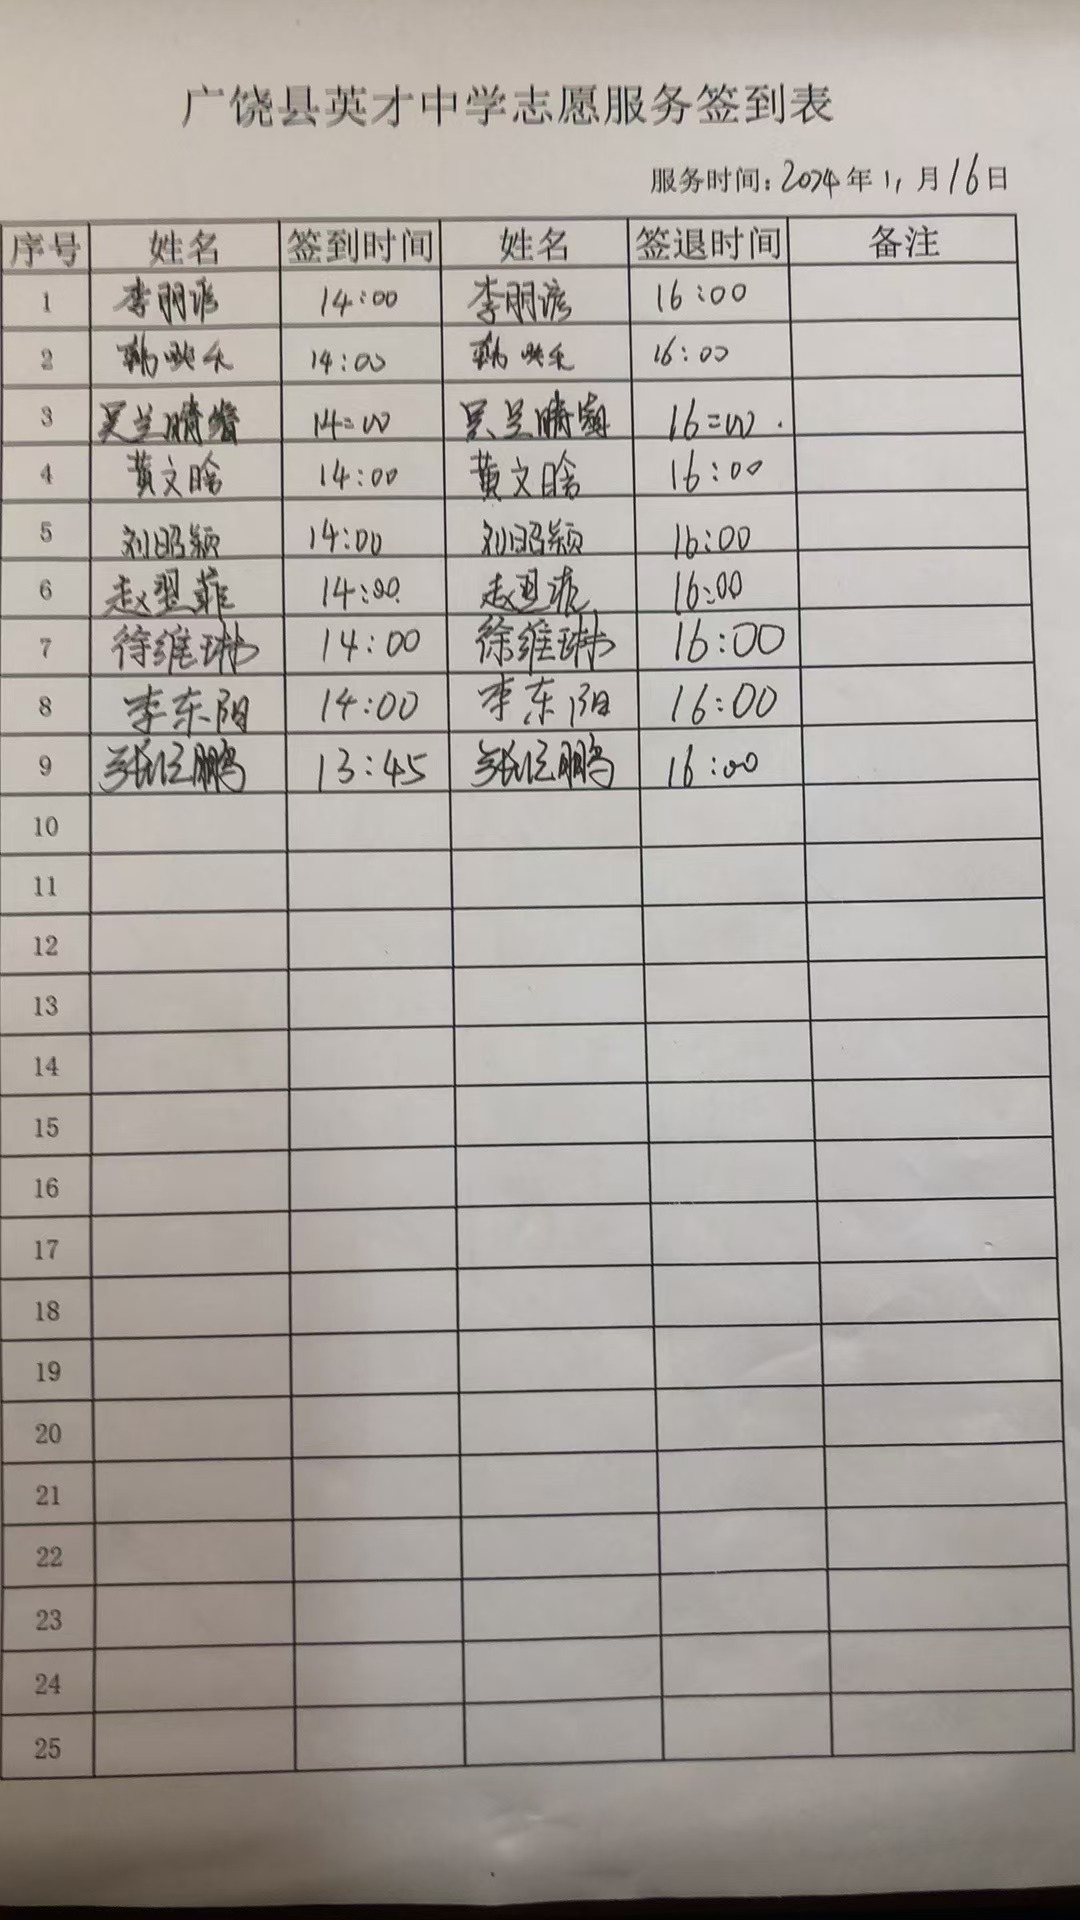 广饶县英才中学志愿服务签到表
服务时间：2024年11月16日
序号 姓名 签到时间 姓名 签退时间 备注
1 李朋 14:00 李朋 16:00
2 韩 14:00 韩 16:00
3 吴兰晴 14:00 吴兰晴 16:00.
4 黄文晗 14:00 黄文晗 16:00
5 刘昭颖 14:00 刘昭颖 16:00
6 赵翌菲 14:00 赵 16:00
7 徐维琳 14:00 徐维琳 16:00
8 李东阳 14:00 李东阳 16:00
9 张 鹏 13:45 张 鹏 16:00
10
11
12
13
14
15
16
17
18
19
20
21
22
23
24
25